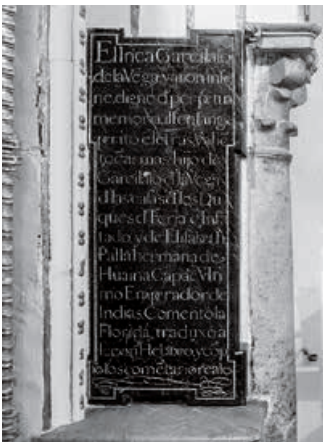 El Inca Garcilaso
de la Vega, varon insi
ne, digno d perpetua
memoria
perito e letras, Valie
te armas, hijo de
Garcilaso d la Vega
d las casas d los Du
ques d Feria e Infa
tado, y de Elisabeth
Palla hermana de
Huaina Capac Vlti
mo Emperador de
Indias. Comento la
Florida, traduxo a
Leon Hebreo, y cõp
los comentarios reale